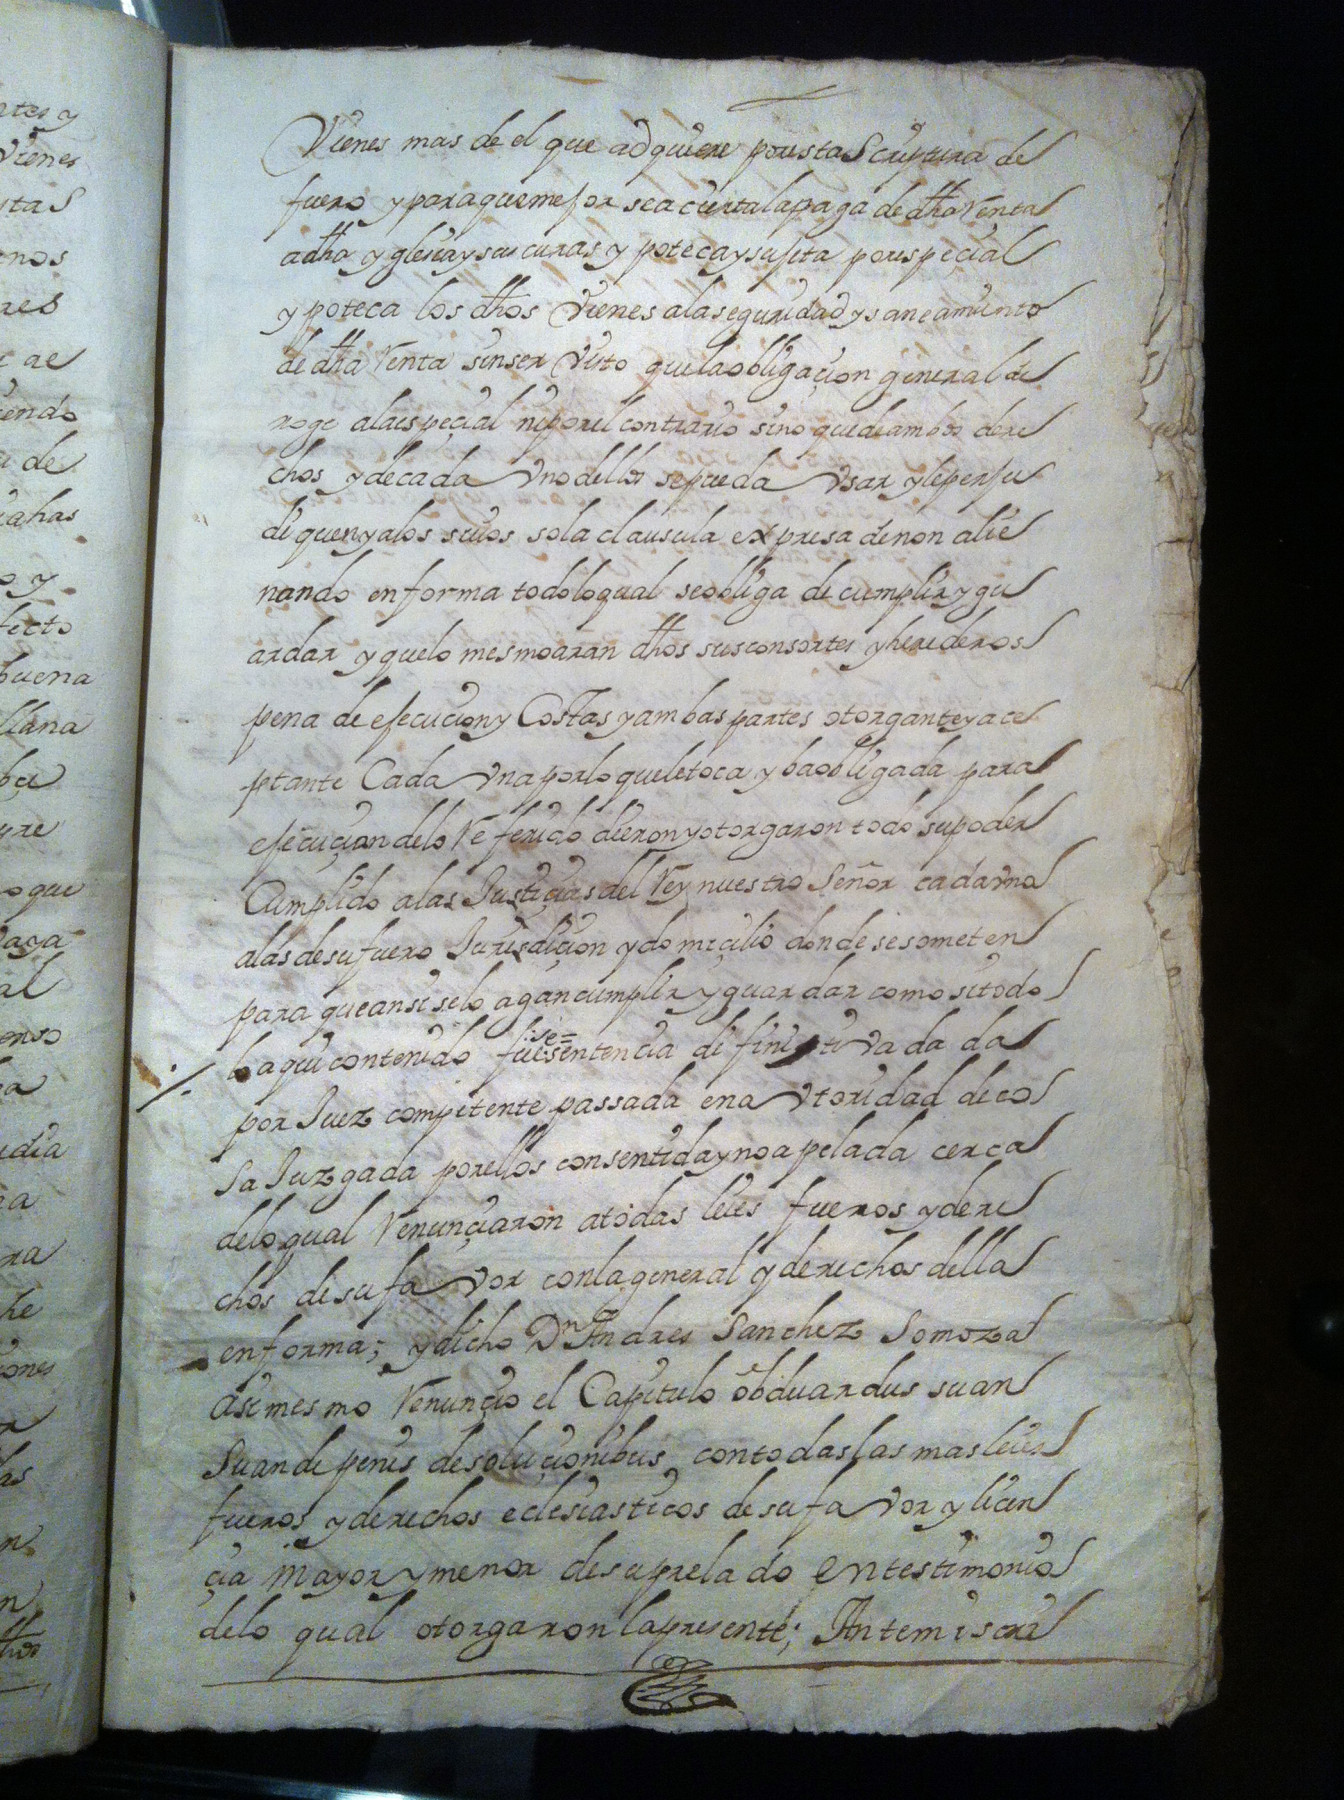 ntes y
Vienes
stas
nos
res
de
iendo
de
ahas
o y
fecto
buena
llana
bu
yre
o que
aya
al
enso
a
dia
a
ra
he
iones
as
n
n
dhos
Vienes mas de el que adquiere poresta Scriptura de
fuero y paraquemejor sea ciertalapaga de dha Venta
adha yglesia y sus curas ypoteca y sujeta porespeçial
ypoteca los dhos Vienes alaseguridad y saneamiento
de dha Venta sinser Visto quelaobligaçion general de
roge alaespeçial niporel contrario sino quedeambos dere
chos ydecada Vno dellos sepueda Vsar y leperju
diquen yalos suios sola clausula expresa denon alie
nando enforma todoloqual seobliga de cumplir y gu
ardar y quelo mesmoaran dhos susconsortes y herederos
pena de ejecucion y Costas yambaspartes otorgante y ace
ptante Cada Vna porlo queletoca y baobligada para
ejecuçion delo Referido dieron y otorgaron todo supoder
Cumplido alas Justiçias del Rey nuestro Señor cadauno
alas desufuero Jurisdiçion y domicilio donde sesometen
para queansi selo agan cumplir y guardar como sitodo
lo aqui contenido fuese sentencia difinitiva dada
por Juez competente passada ena Vtoridad deco
sa Juzgada porellos consentida y no apelada cerca
delo qual Renunçiaron atodas leies fueros y dere
chos desufa Vor conlageneral y derechos della
enforma; ydicho Dn Andres Sanchez Somoza
asimesmo Renunçio el Capitulo obduardus suan
Suandepenis desoluçionibus contodaslas mas leies
fueros y derechos eclesiasticos desufa Vor y liçen
çia mayor y menor desuprelado Entestimonio
delo qual otorgaron lapresente; Antemi scri